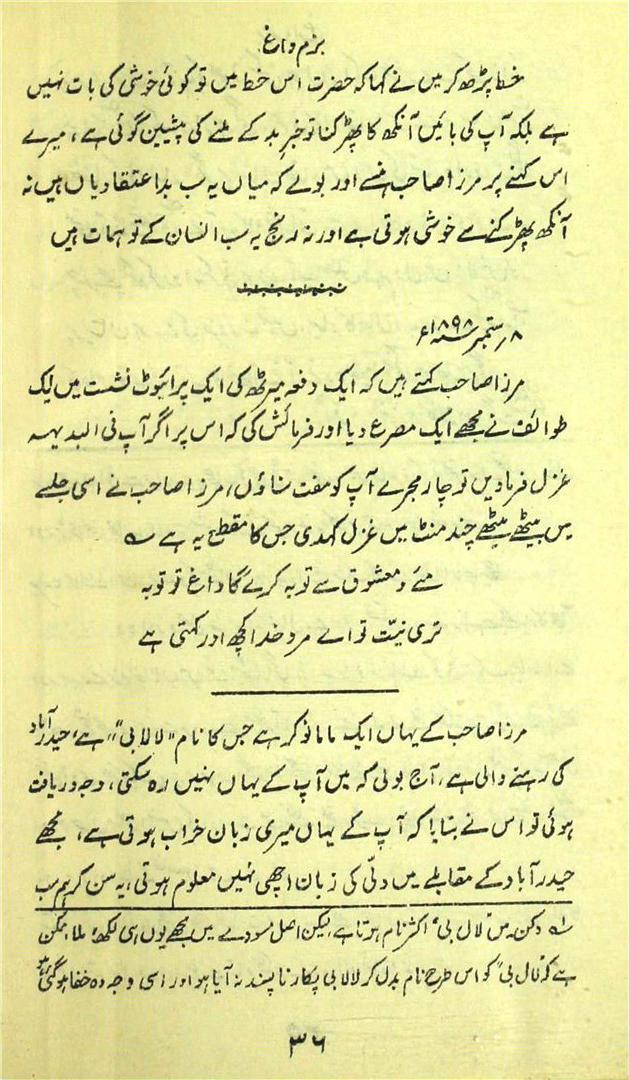 بزم داغ
خط پڑھ کر میں نے کہا کہ حضرت اس خط میں تو کوئی خوشی کی بات نہیں
ہے بلکہ آپ کی بائیں آنکھ کا پھڑکنا تو خبرِ بد کے ملنے کی پیشین گوئی ہے، میرے
اس کہنے پر مرزا صاحب ہنسے اور بولے کہ میاں یہ سب بد اعتقادیاں ہیں نہ
آنکھ پھڑکنے سے خوشی ہوتی ہے اور نہ رنج یہ سب انسان کے توہمات ہیں
۸؍ستمبر ۱۸۹۸ء
مرزا صاحب کہتے ہیں کہ ایک دفعہ میرٹھ کی ایک پرائیوٹ نشست میں ایک
طوائف نے مجھے ایک مصرع دیا اور فرمائش کی کہ اس پر اگر آپ فی البدیہہ
غزل فرمادیں تو چار مجرے آپ کو مفت سناؤں، مرزا صاحب نے اسی جلسے
میں بیٹھے بیٹھے چند منٹ میں غزل کہدی جس کا مقطع یہ ہے ؎
مئے و معشوق سے توبہ کرے گا داغ تو توبہ
تری نیّت تو اے مرد خدا کچھ اور کہتی ہے
مرزا صاحب کے یہاں ایک ماما نوکر ہے جس کا نام "لالا بی" ہے، حیدرآباد
کی رہنے والی ہے، آج بولی کہ میں آپ کے یہاں نہیں رہ سکتی، وجہ دریافت
ہوئی تو اس نے بتایا کہ آپ کے یہاں میری زبان خراب ہوتی ہے، مجھے
حیدرآباد کے مقابلے میں دلّی کی زبان اچھی نہیں معلوم ہوتی، یہ سن کر ہم سب
؎ دکن میں لال بی اکثر نام ہوتا ہے، لیکن اصل مسودے میں مجھے یوں ہی لکھا ملا، ممکن
ہے کہ "لال بی" کو اس طرح نام بدل کر لالا بی پکارنا پسند نہ آیا ہو اور اسی وجہ وہ خفا ہوگئی ہو
۳۶